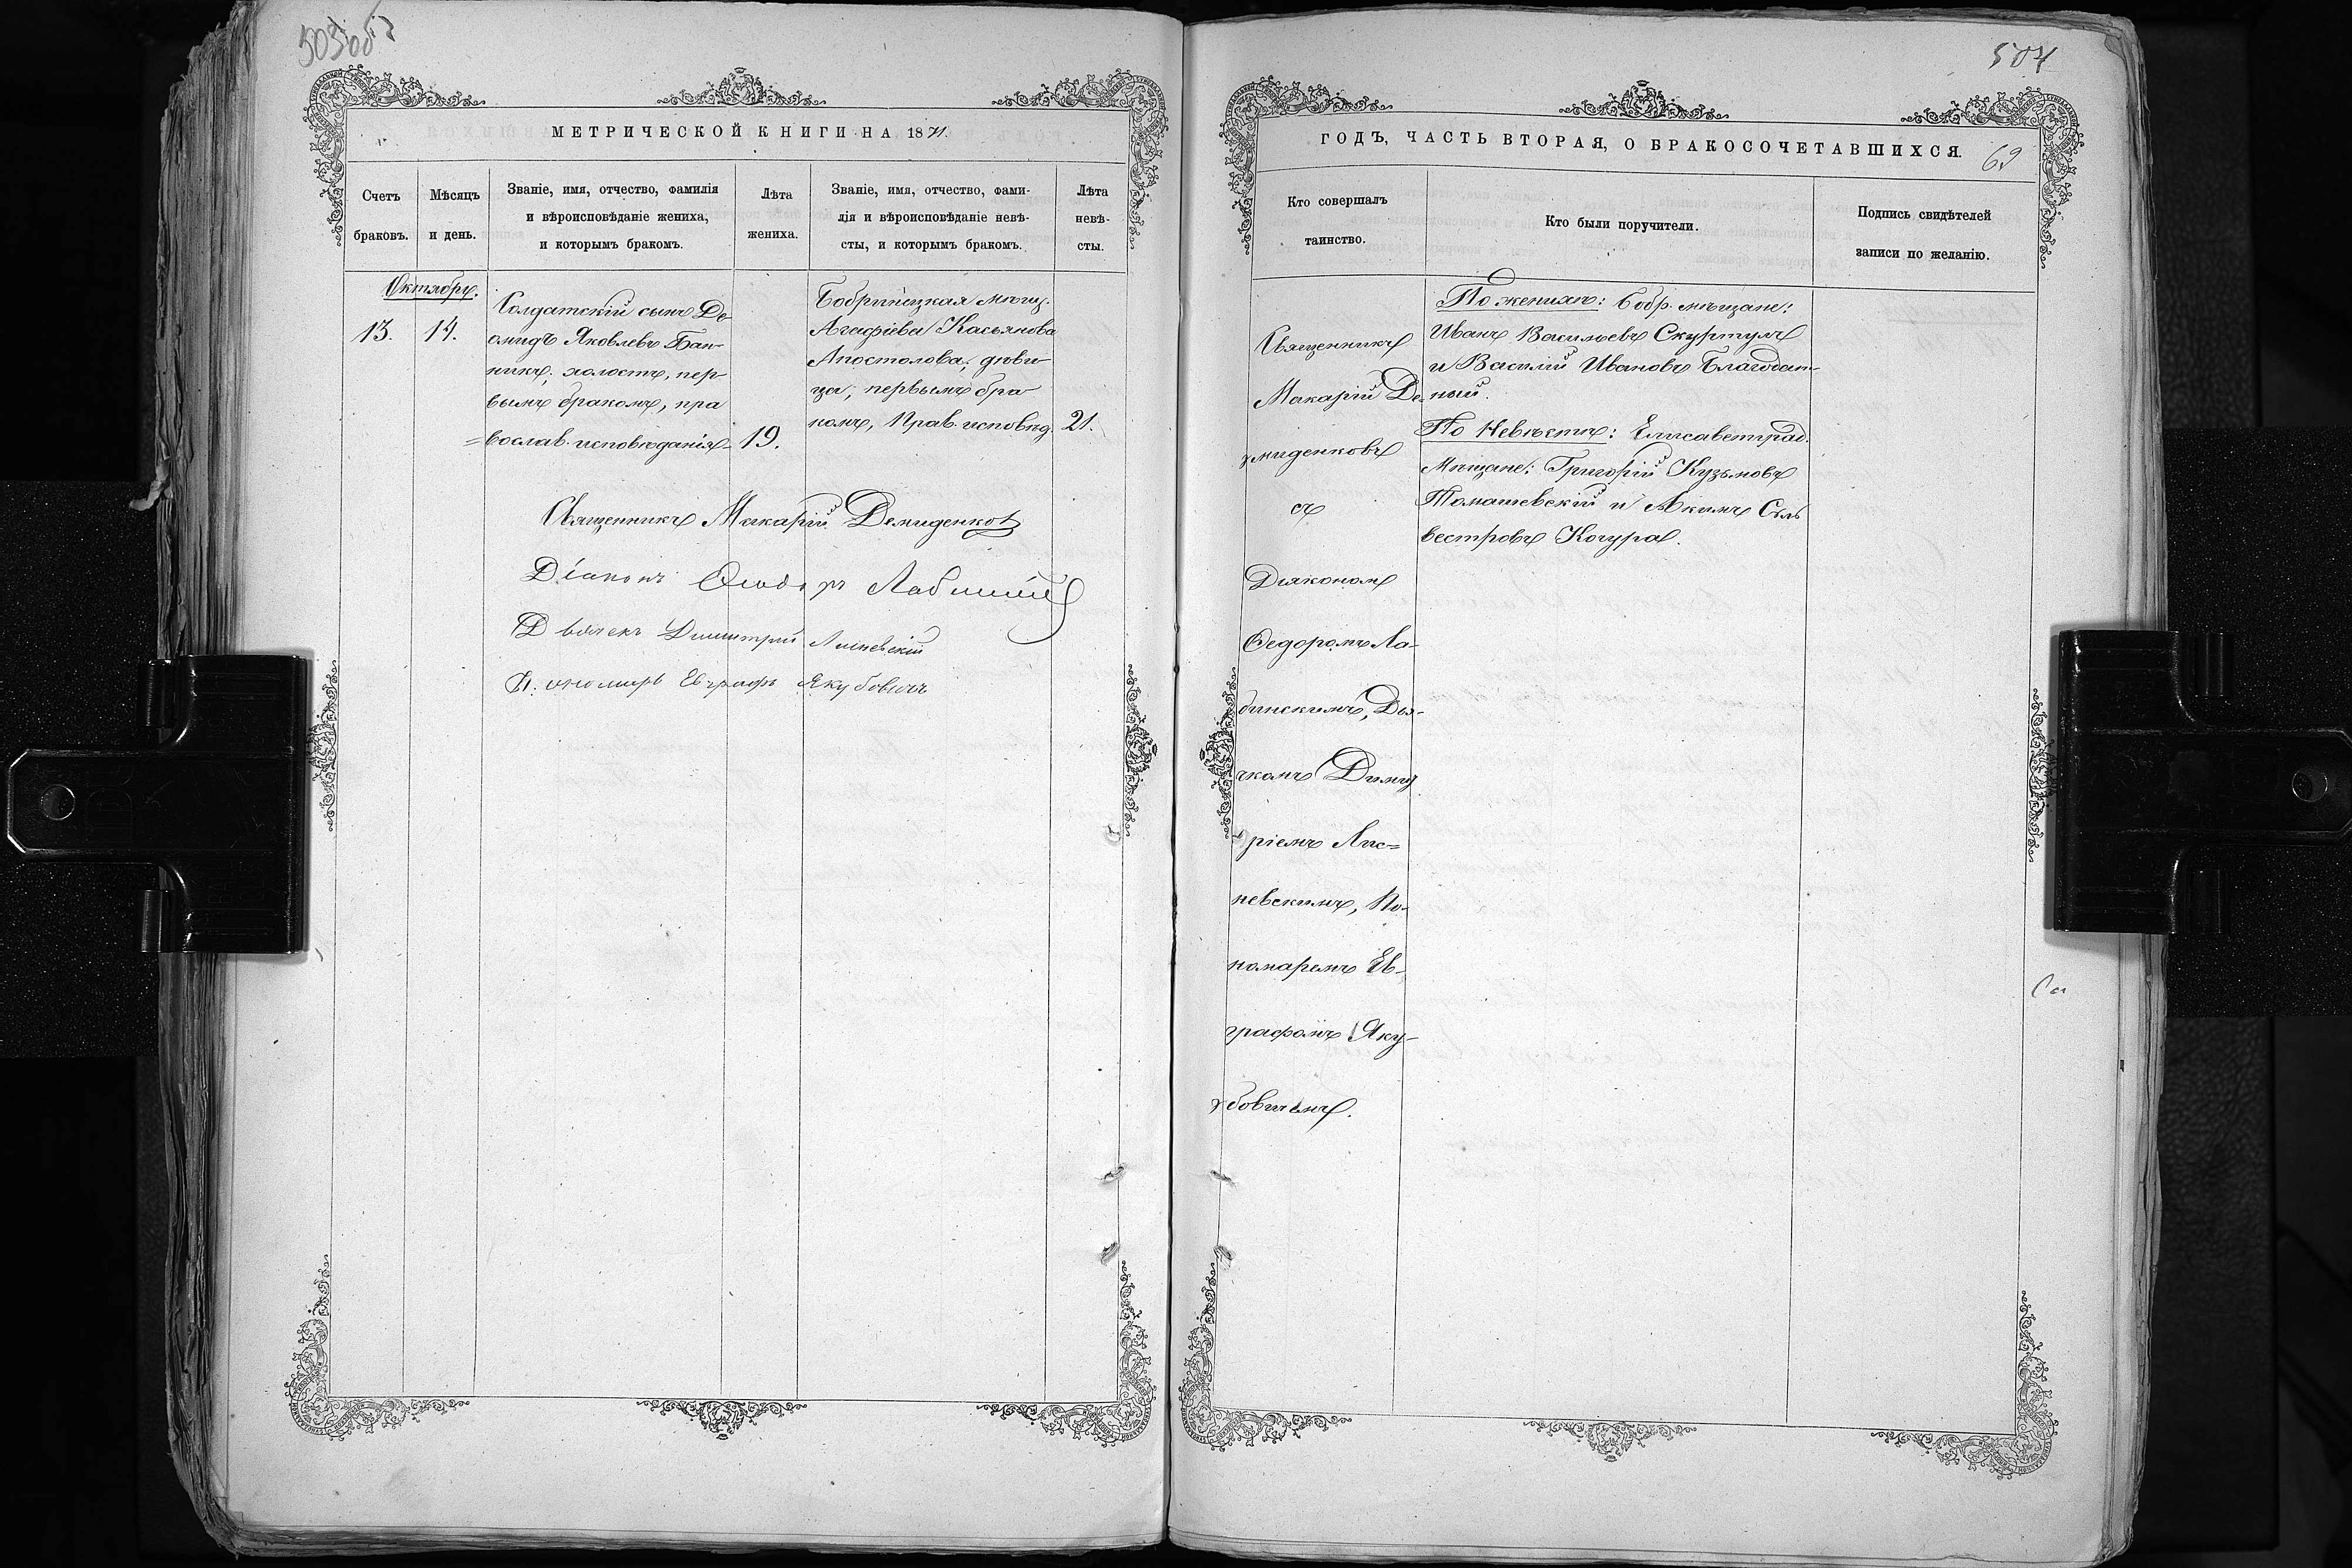 503об
МЕТРИЧЕСКОЙ КНИГИ НА 1871.
Счетъ браковъ.
Мѣсяцъ и день.
Званіе, имя, отчество, фамилія
и вѣроисповѣданіе жениха,
и которымъ бракомъ.
Лѣта
жениха.
Званіе, имя, отчество, фами-
лія и вѣроисповѣданіе невѣ-
сты, и которымъ бракомъ.
Лѣта
невѣ-
сты.
Октябрь.
13.
14.
Солдатскій сынъ Де-
омидъ Яковлевъ Бан-
никъ, холостъ, пер
вымъ бракомъ, пра
=вослав. исповѣданія-
19.
Бобринецкая мѣщ.
Агафіева Касьянова
Апостолова, дѣви-
ца, первымъ бра
комъ, Прав. исповѣд.
21.
Священникъ Макарій Демиденков
Діаконъ Ѳеодоръ Лабинскій
Дьячекъ Димитрій Лисневскій
Пономарь Евграфъ Якубовичъ
504
ГОДЪ, ЧАСТЬ ВТОРАЯ, О БРАКОСОЧЕТАВШИХСЯ.
69
Кто совершалъ
таинство.
Кто были поручители.
Подпись свидѣтелей
записи по желанію.
Священникъ
Макарій Де-
миденковъ
съ
Діякономъ
Ѳедоромъ Ла-
бинскимъ, Дья-
чкомъ Димит
ріемъ Лис=
невскимъ, По-
номаремъ Ев-
графомъ Яку-
бовичемъ.
По женихѣ: Бобр. мѣщане:
Иванъ Васильевъ Скуртулъ
и Василій Ивановъ Благодат-
ный.
По Невѣстѣ: Елисаветград.
Мѣщане: Григорій Кузьмовъ
Томашевскій и Акимъ Силь
вестровъ Кочура.